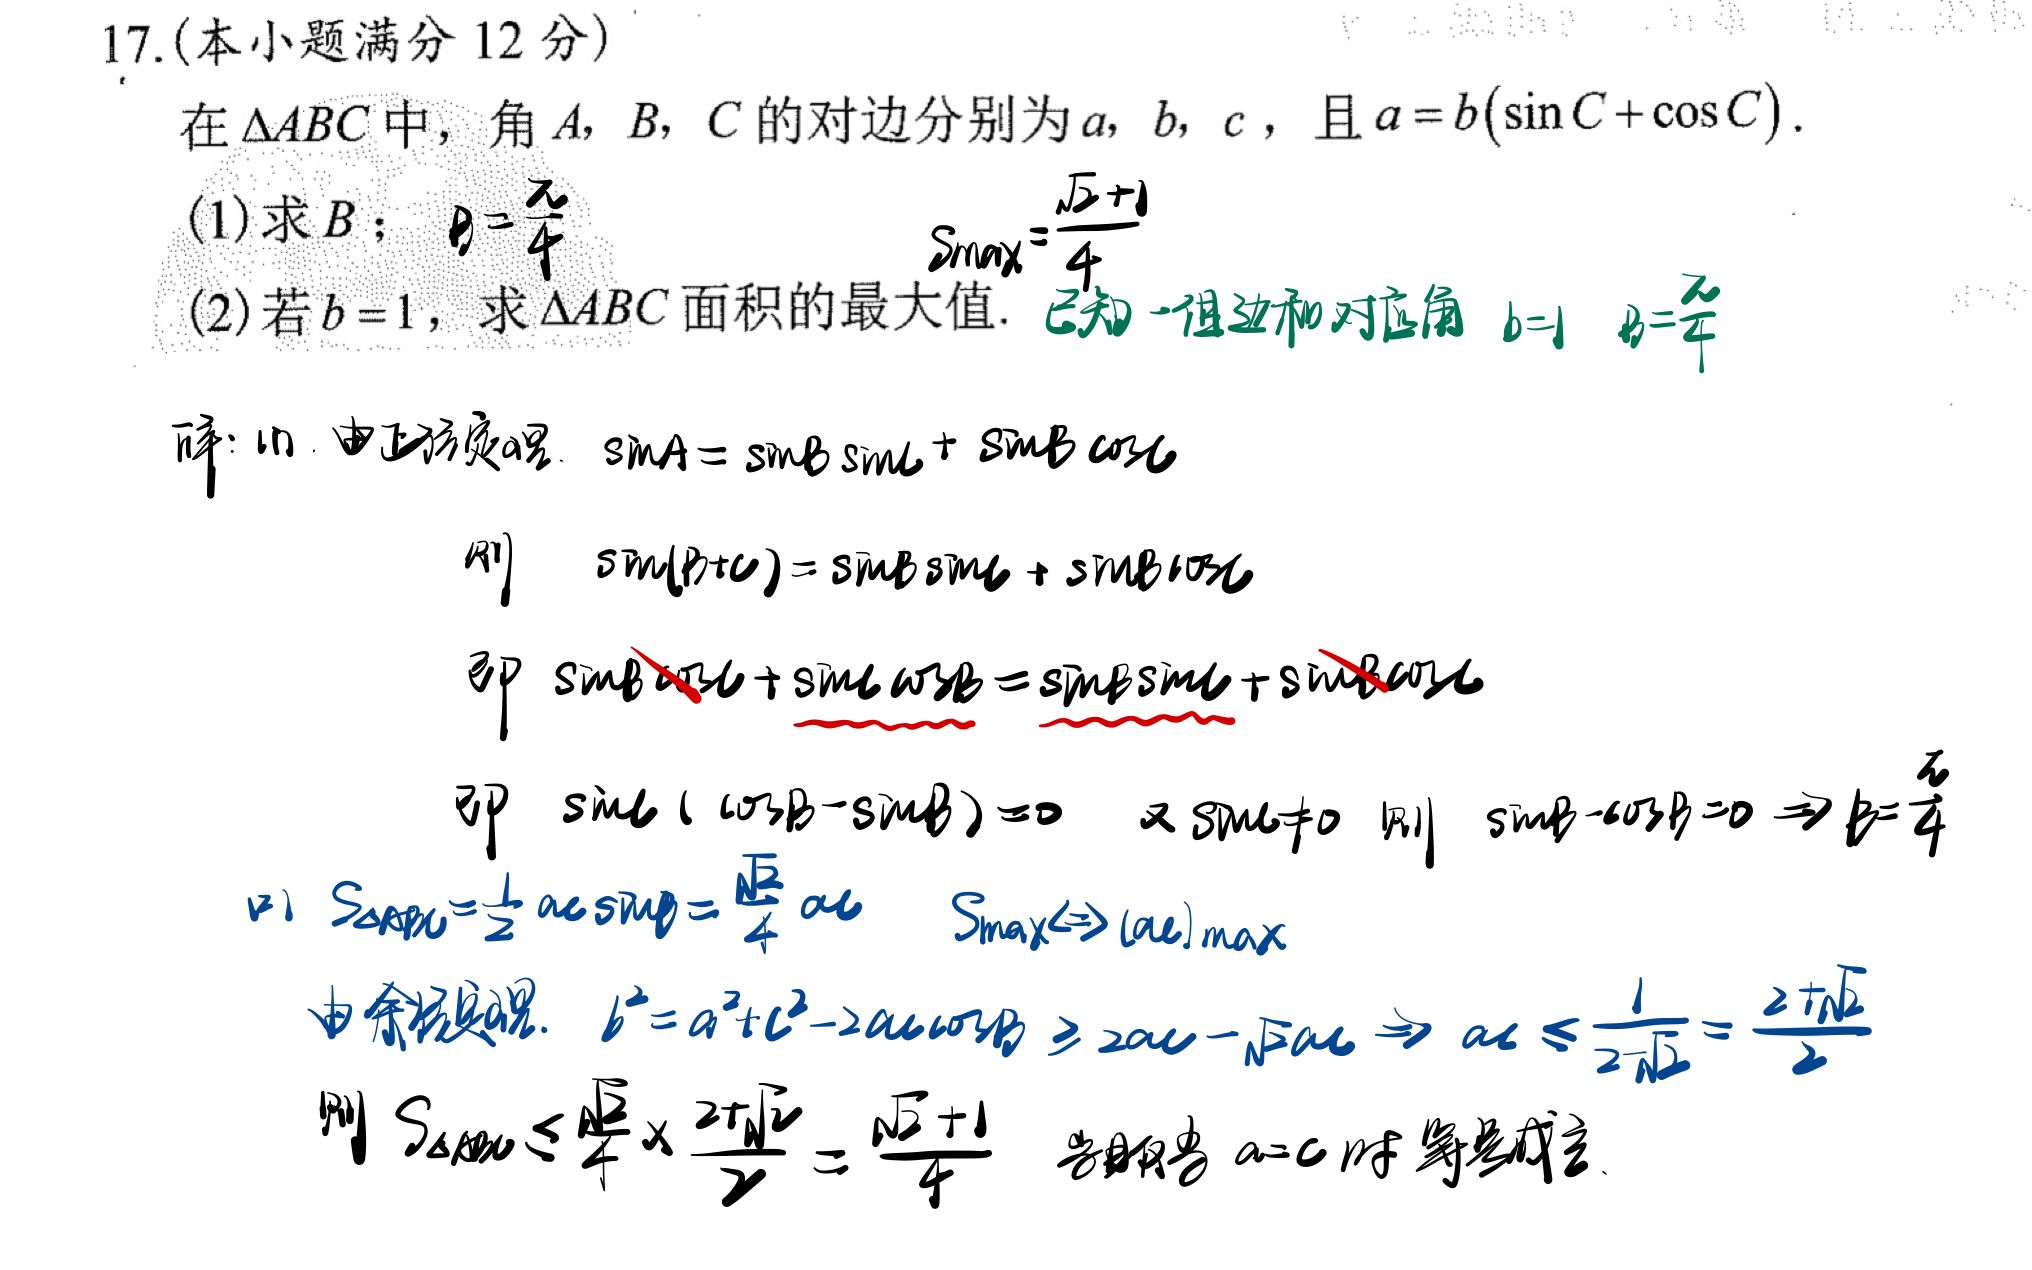 17.(本小题满分 12 分)
在 ΔABC 中，角 A，B，C 的对边分别为 a，b，c，且 a = b(sin C + cos C).
(1)求 B； B=π/4 Smax=(√2+1)/4
(2)若 b=1，求 ΔABC 面积的最大值. 已知一组边和对应角 b=1 B=π/4
解: (1). 由正弦定理. sinA = sinB sinC + sinB cosC
则 sin(B+C) = sinB sinC + sinB cosC
即 sinB cosC + sinC cosB = sinB sinC + sinB cosC
即 sinC ( cosB - sinB ) = 0 又 sinC≠0 则 sinB - cosB = 0 ⇒ B = π/4
(2) S△ABC = 1/2 ac sinB = √2/4 ac Smax ⇔ (ac)max
由余弦定理. b² = a² + c² - 2ac cosB ≥ 2ac - √2 ac ⇒ ac ≤ 1/(2-√2) = (2+√2)/2
则 S△ABC ≤ √2/4 × (2+√2)/2 = (√2+1)/4 当且仅当 a=c 时 等号成立.